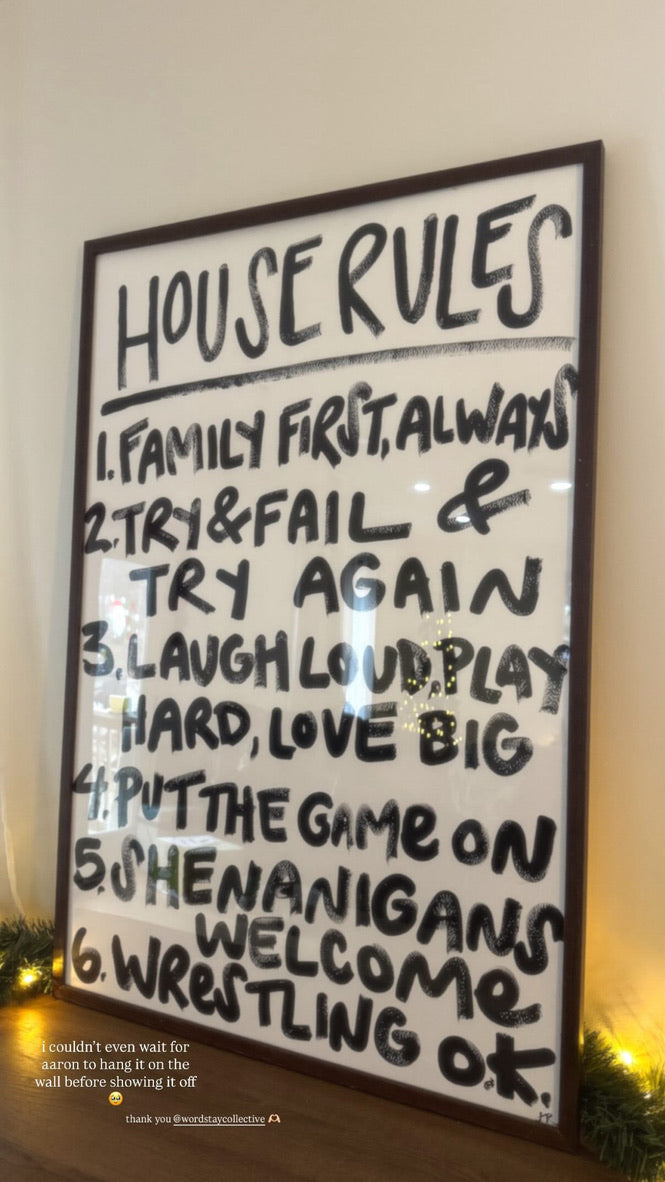 HOUSE RULES
1. FAMILY FIRST, ALWAYS
2. TRY & FAIL &
TRY AGAIN
3. LAUGH LOUD, PLAY
HARD, LOVE BIG
4. PUT THE GAMe ON
5. SHENANIGANS
WELCOMe
6. WReSTLING OK.
i couldn't even wait for
aaron to hang it on the
wall before showing it off
🥹
thank you @wordstaycollective 🫶🏼